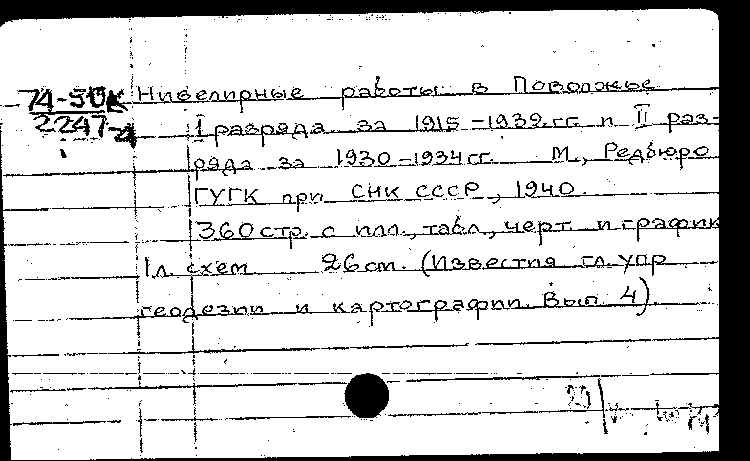 Нивелирные работы в Поволжье
2247-4
I разряда за 1915-1939 гг и II раз-
ряда за 1930-1934 гг. М., Редбюро
ГУГК при СНК СССР, 1940.
360 стр. с илл., табл., черт. и график
1 л. схем 26 см. (Известия гл. упр
геодезии и картографии. Вып. 4).